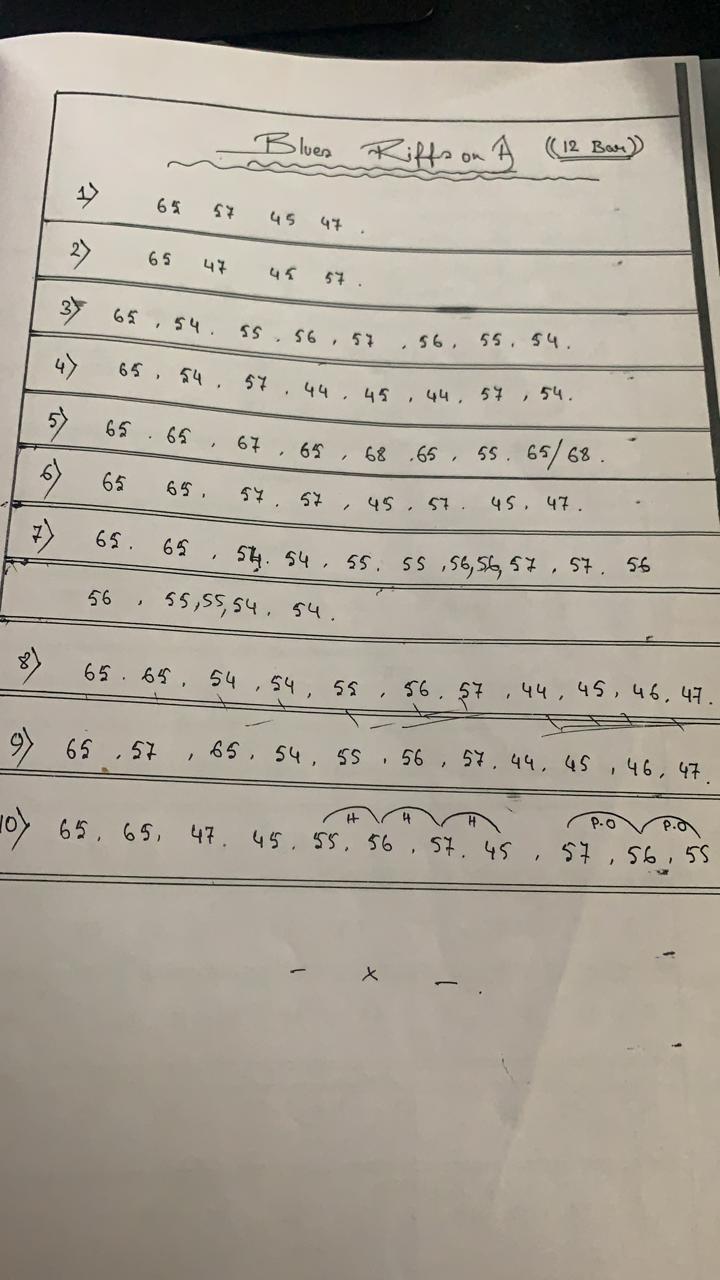 Blues Riffs on A ((12 Bar))
1) 65 57 45 47 .
2) 65 47 45 57 .
3) 65 , 54 . 55 . 56 , 57 , 56 , 55 , 54 .
4) 65 , 54 . 57 . 44 . 45 , 44 . 57 , 54 .
5) 65 . 65 , 67 , 65 , 68 . 65 , 55 . 65/68 .
6) 65 65 . 57 . 57 , 45 , 57 . 45 . 47 .
7) 65 . 65 , 54 . 54 , 55 . 55 , 56 , 56 , 57 , 57 . 56
56 , 55 , 55 , 54 . 54 .
8) 65 . 65 , 54 , 54 , 55 , 56 . 57 , 44 , 45 , 46 , 47 .
9) 65 , 57 , 65 , 54 , 55 , 56 , 57 . 44 . 45 , 46 , 47 .
H H H P.O P.O
10) 65 , 65 , 47 . 45 . 55 . 56 . 57 . 45 , 57 , 56 , 55
- x - .